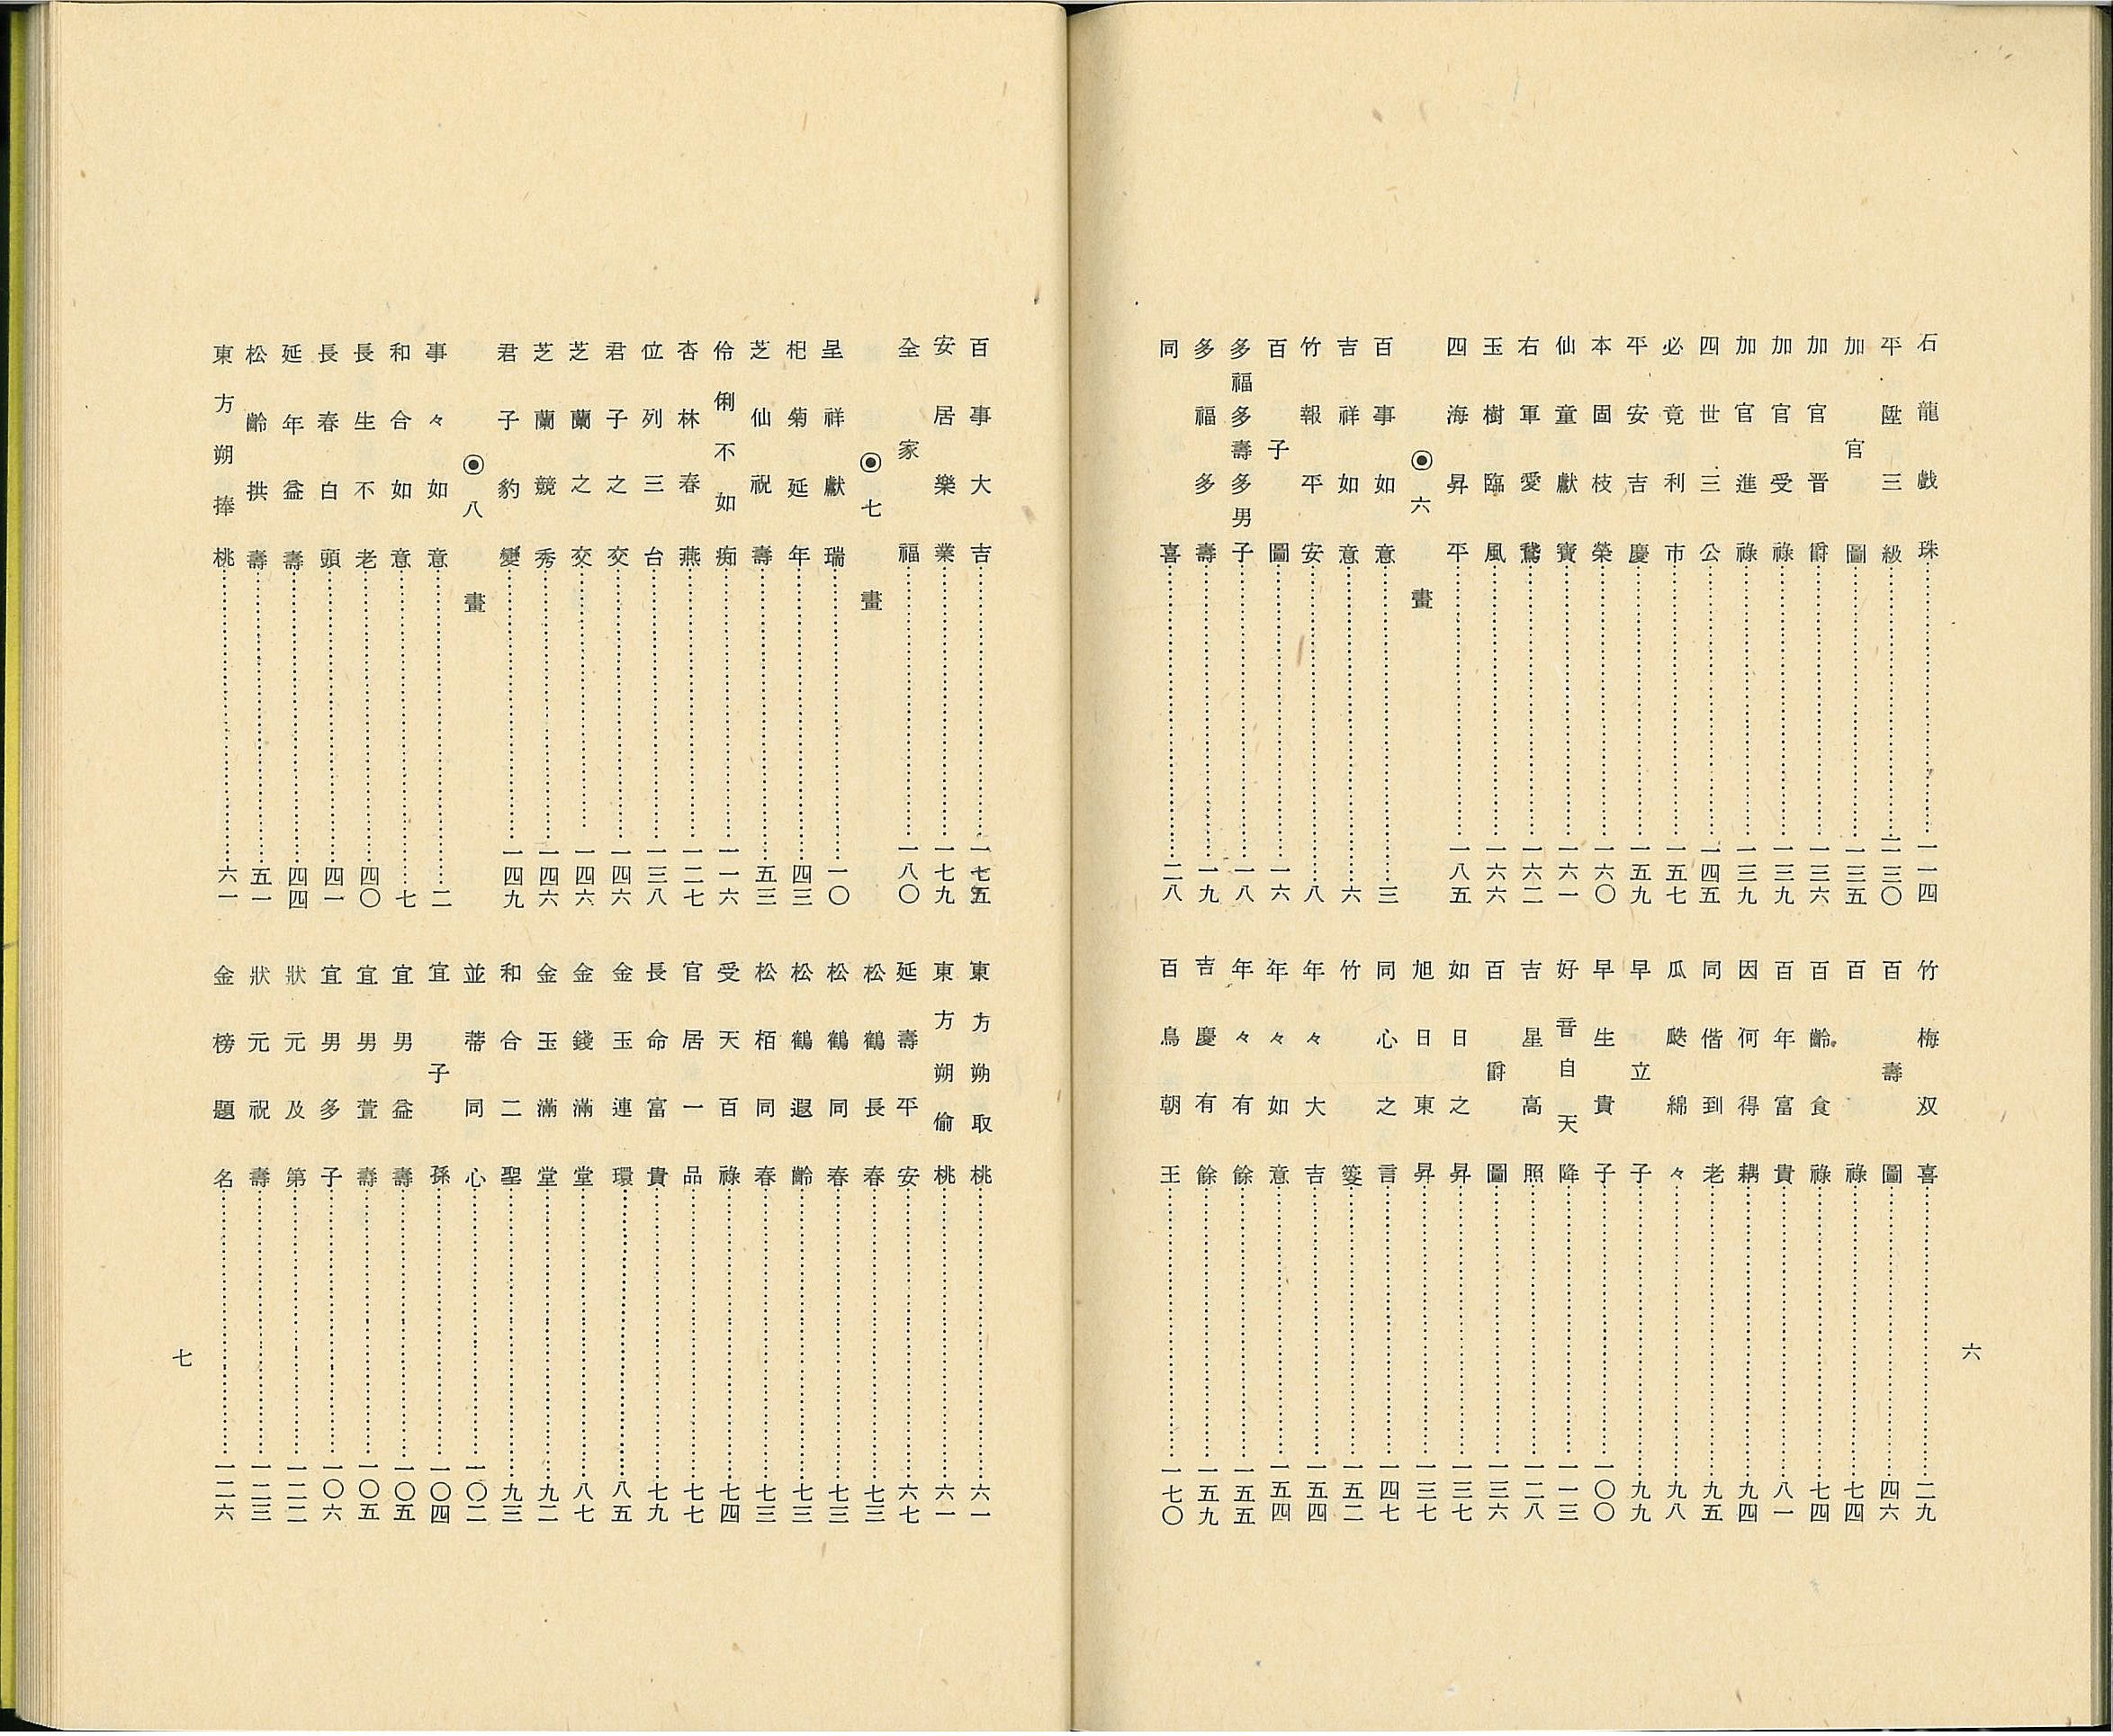 石龍戲珠⋯⋯一一四
平陞三級⋯⋯一三〇
加官圖⋯⋯一三五
加官晋爵⋯⋯一三六
加官受祿⋯⋯一三九
加官進祿⋯⋯一三九
四世三公⋯⋯一四五
必竟利市⋯⋯一五七
平安吉慶⋯⋯一五九
本固枝榮⋯⋯一六〇
仙童獻寶⋯⋯一六一
右軍愛鵞⋯⋯一六二
玉樹臨風⋯⋯一六六
四海昇平⋯⋯一八五
◉六畫
百事如意⋯⋯三
吉祥如意⋯⋯六
竹報平安⋯⋯八
百子圖⋯⋯一六
多福多壽多男子⋯⋯一八
多福多壽⋯⋯一九
同喜⋯⋯二八
竹梅双喜⋯⋯二九
百壽圖⋯⋯四六
百祿⋯⋯七四
百齡食祿⋯⋯七四
百年富貴⋯⋯八一
因何得耦⋯⋯九四
同偕到老⋯⋯九五
瓜瓞綿々⋯⋯九八
早立子⋯⋯九九
早生貴子⋯⋯一〇〇
好音自天降⋯⋯一一三
吉星高照⋯⋯一二八
百爵圖⋯⋯一三六
如日之昇⋯⋯一三七
旭日東昇⋯⋯一三七
同心之言⋯⋯一四七
竹䇲⋯⋯一五二
年々大吉⋯⋯一五四
年々如意⋯⋯一五四
年々有餘⋯⋯一五五
吉慶有餘⋯⋯一五九
百鳥朝王⋯⋯一七〇
六
百事大吉⋯⋯一七五
安居樂業⋯⋯一七九
全家福⋯⋯一八〇
◉七畫
呈祥獻瑞⋯⋯一〇
杞菊延年⋯⋯四三
芝仙祝壽⋯⋯五三
伶俐不如痴⋯⋯一一六
杏林春燕⋯⋯一二七
位列三台⋯⋯一三八
君子之交⋯⋯一四六
芝蘭之交⋯⋯一四六
芝蘭競秀⋯⋯一四六
君子豹變⋯⋯一四九
◉八畫
事々如意⋯⋯二
和合如意⋯⋯七
長生不老⋯⋯四〇
長春白頭⋯⋯四一
延年益壽⋯⋯四四
松齡拱壽⋯⋯五一
東方朔捧桃⋯⋯六一
東方朔取桃⋯⋯六一
東方朔偷桃⋯⋯六一
延壽平安⋯⋯六七
松鶴長春⋯⋯七三
松鶴同春⋯⋯七三
松鶴遐齡⋯⋯七三
松栢同春⋯⋯七三
受天百祿⋯⋯七四
官居一品⋯⋯七七
長命富貴⋯⋯七九
金玉連環⋯⋯八五
金錢滿堂⋯⋯八七
金玉滿堂⋯⋯九二
和合二聖⋯⋯九三
並蒂同心⋯⋯一〇二
宜子孫⋯⋯一〇四
宜男益壽⋯⋯一〇五
宜男萱壽⋯⋯一〇五
宜男多子⋯⋯一〇六
狀元及第⋯⋯一二二
狀元祝壽⋯⋯一二三
金榜題名⋯⋯一二六
七